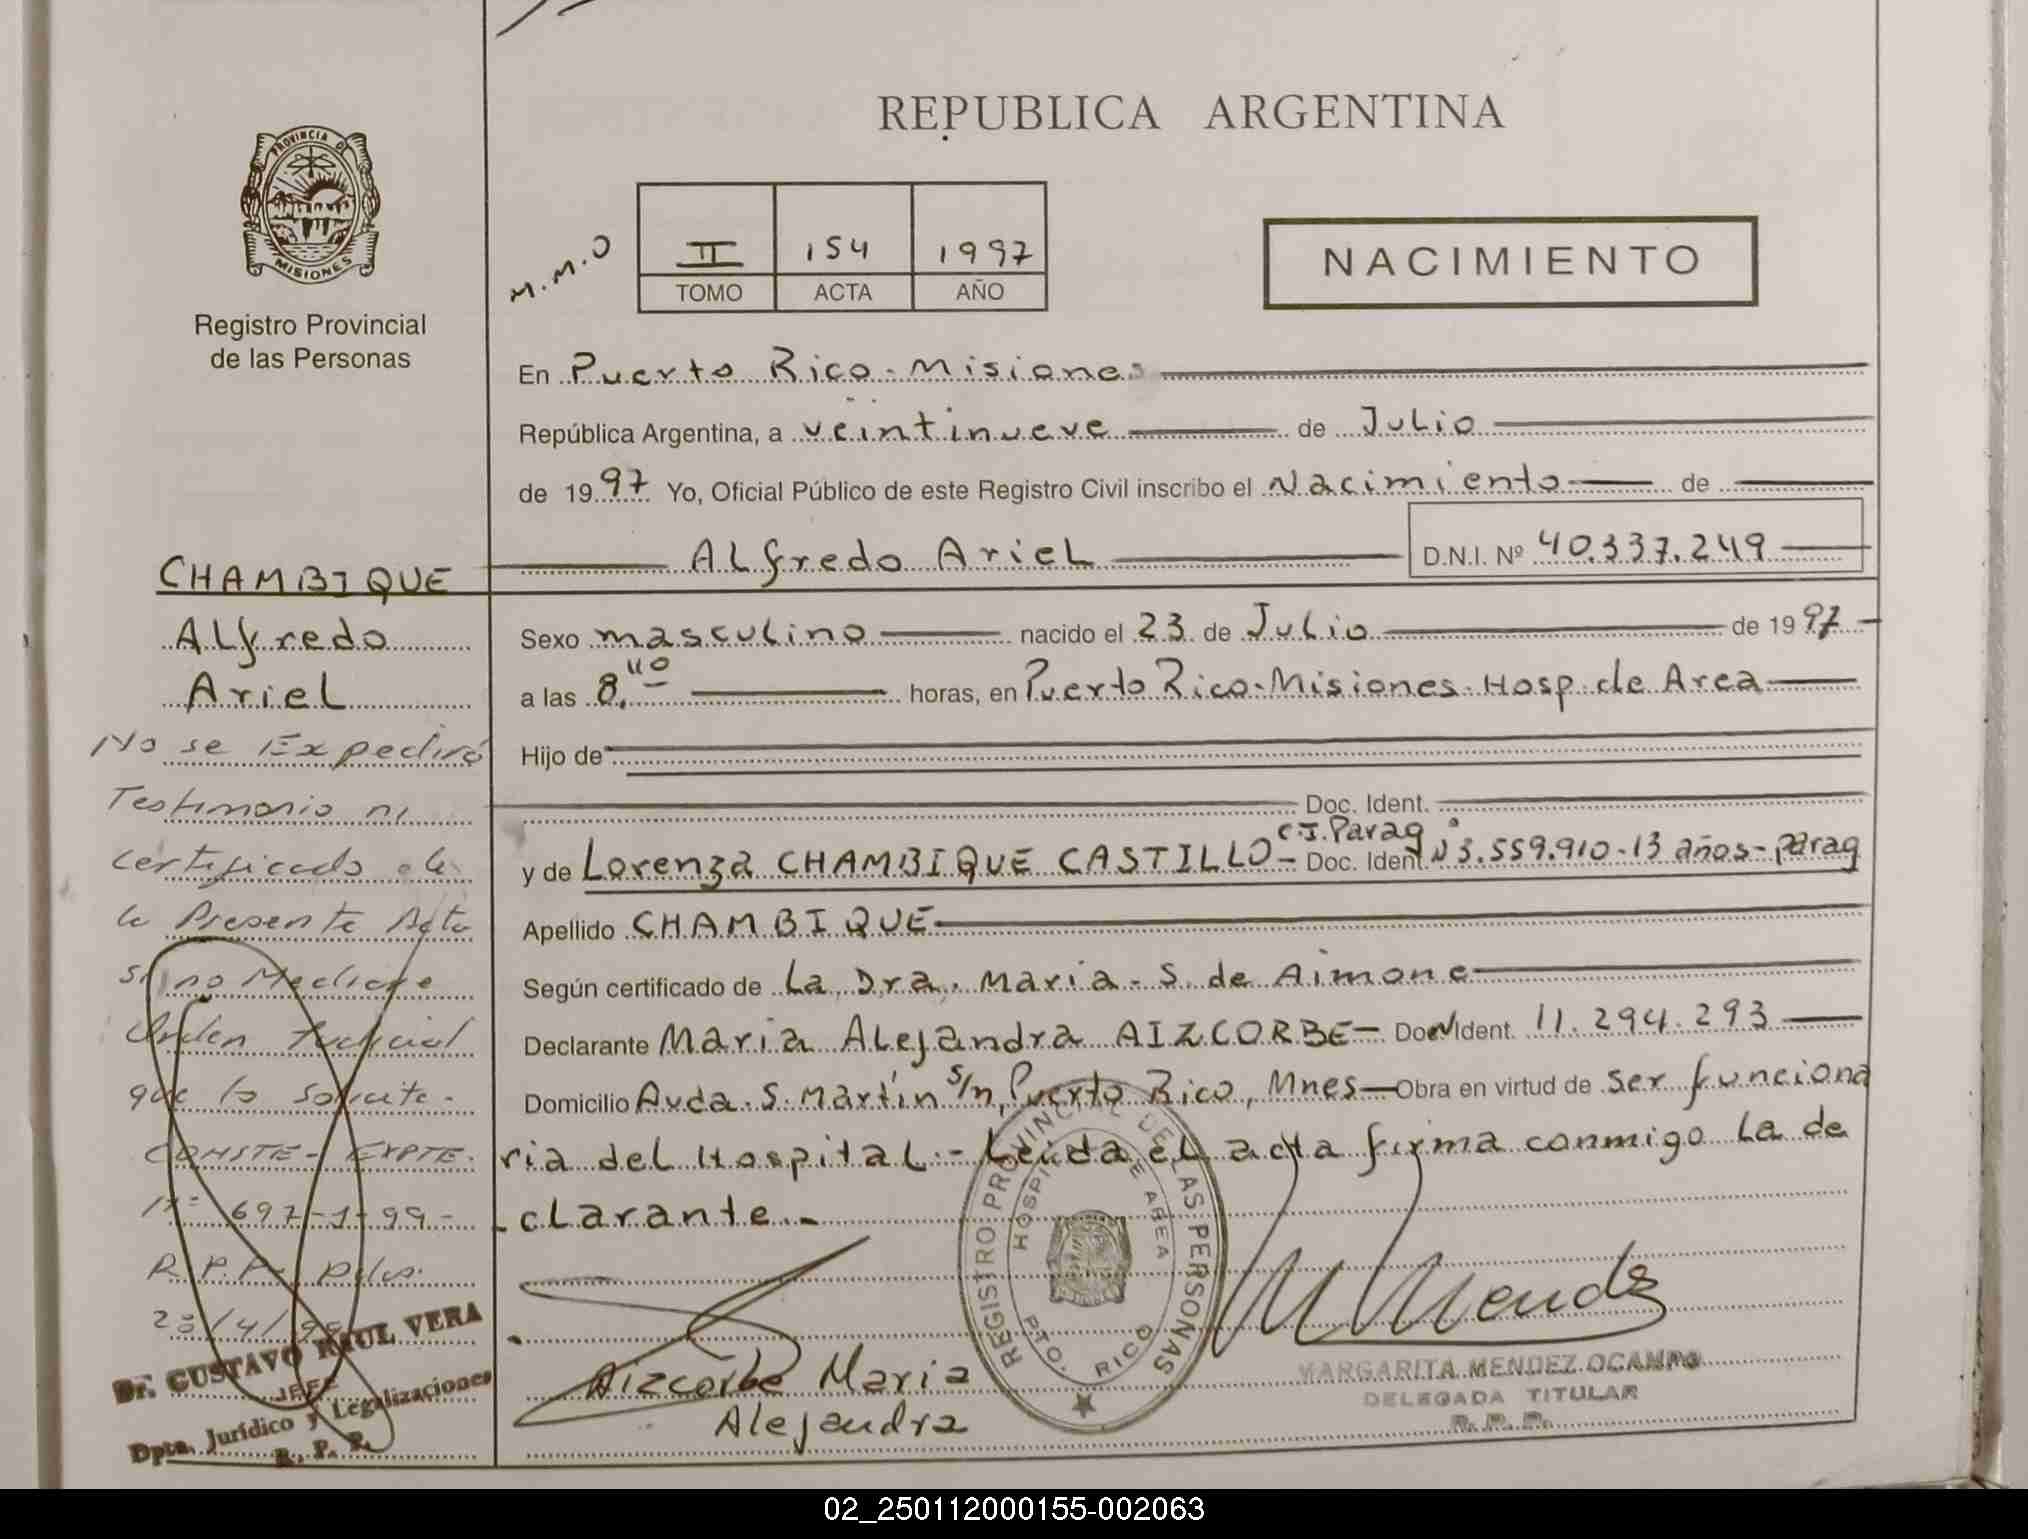 REPUBLICA ARGENTINA
PROVINCIA DE
MISIONES
Registro Provincial
de las Personas
M.M.O
II 154 1997
TOMO ACTA AÑO
NACIMIENTO
En Puerto Rico - Misiones
República Argentina, a veintinueve de Julio
de 1997 Yo, Oficial Público de este Registro Civil inscribo el Nacimiento de
Alfredo Ariel D.N.I. Nº 40.337.249
Sexo masculino nacido el 23 de Julio de 1997
a las 8. horas, en Puerto Rico-Misiones-Hosp. de Area
Hijo de
Doc. Ident.
C.I. Parag
y de Lorenza CHAMBIQUE CASTILLO - Doc. Ident. Nº 3.559.910-13 años-parag
Apellido CHAMBIQUE
Según certificado de La Dra. Maria - S. de Aimone
Declarante Maria Alejandra AIZCORBE - Doc. Ident. 11.294.293
Domicilio Avda. S. Martín s/n, Puerto Rico, Mnes - Obra en virtud de ser funciona
ria del Hospital.- Leida el acta firma conmigo la de
-clarante.-
CHAMBIQUE
Alfredo
Ariel
No se Expedirá
Testimonio ni
Certificado de
la Presente Acta
si no Mediare
Orden Judicial
que lo solicite.
CONSTE - EXPTE.
Nº 697-1-99-
R.P.P.
23/4/99
Dr. GUSTAVO RAUL VERA
JEFE
Dpto. Jurídico y Legalizaciones
R. P. P.
REGISTRO PROVINCIAL DE LAS PERSONAS
HOSPITAL DE AREA
PTO. RICO
Aizcorbe Maria
Alejandra
M Mendez
MARGARITA MENDEZ OCAMPO
DELEGADA TITULAR
R. P. P.
02_250112000155-002063